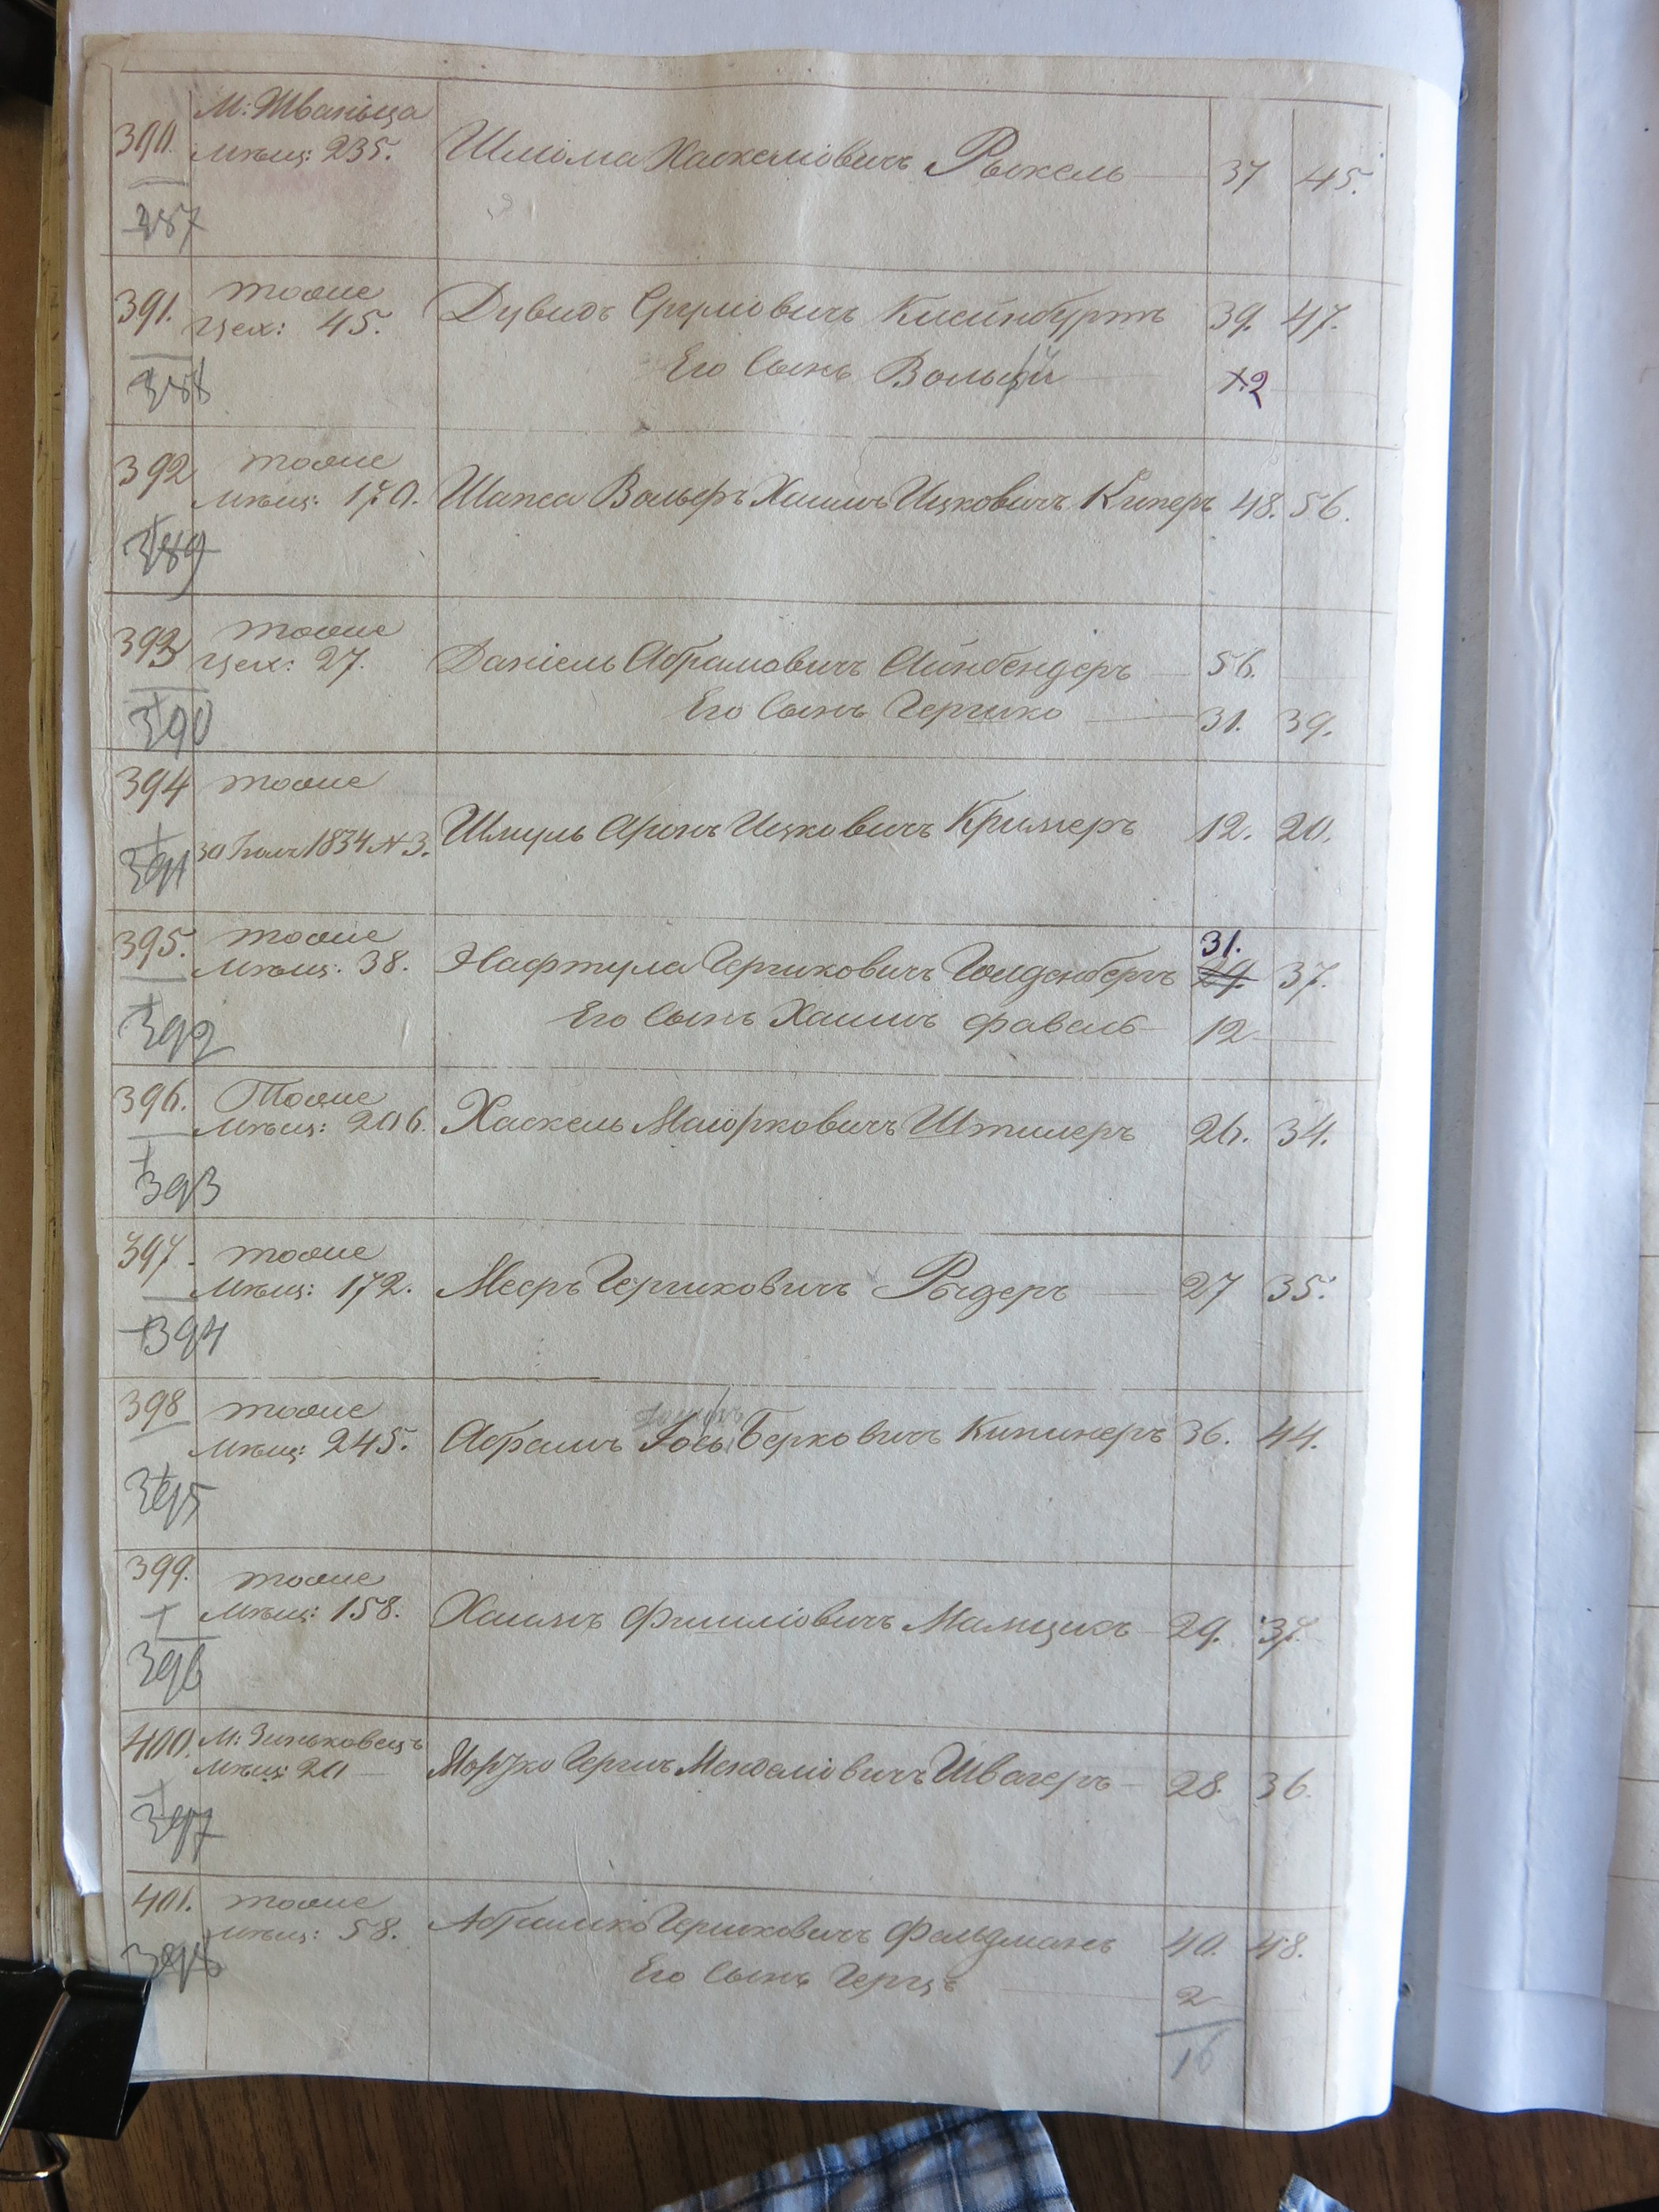 390. М: Жванѣца
мѣщ: 235. Шліома Хаскеліовичъ Рыхель 37 45.
387
391. тоже
Цех: 45. Дувидъ Сруліовичъ Клейнбуртъ 39. 47.
388 Его Сынъ Вольф 2
392 тоже
мѣщ: 170. Шапса Вольфъ Хаимъ Ицковичъ Киперъ 48. 56.
389
393 тоже
Цех: 27. Даніель Абрамовичъ Айнбендеръ 56.
390 Его Сынъ Гершко 31. 39.
394 тоже
30 1834 № 3. Шмуль Аронъ Ицковичъ Кримеръ 12. 20.
391
395. тоже 31.
мѣщ: 38. Нафтула Гершковичъ Голденбергъ 29. 37.
392 Его Сынъ Хаимъ Фавель 12
396. Тоже
мѣщ: 206. Хаскель Маіорковичъ Штилеръ 26. 34.
393
397. тоже
мѣщ: 172. Мееръ Гершковичъ Рыдеръ 27 35.
394
398 тоже
мѣщ: 245. Абрамъ Іось Берковичъ Кипнеръ 36. 44.
395
399. тоже
мѣщ: 158. Хаимъ Фишліовичъ Мамщихъ 29. 37.
396
400. М: Зиньковецъ
мѣщ: 20 Моржко Гершъ Менделіовичъ Швагеръ 28. 36.
397
401. тоже
мѣщ: 58. Абрамко Гершковичъ Фельдманъ 40. 48.
398 Его Сынъ Герцъ 2
16